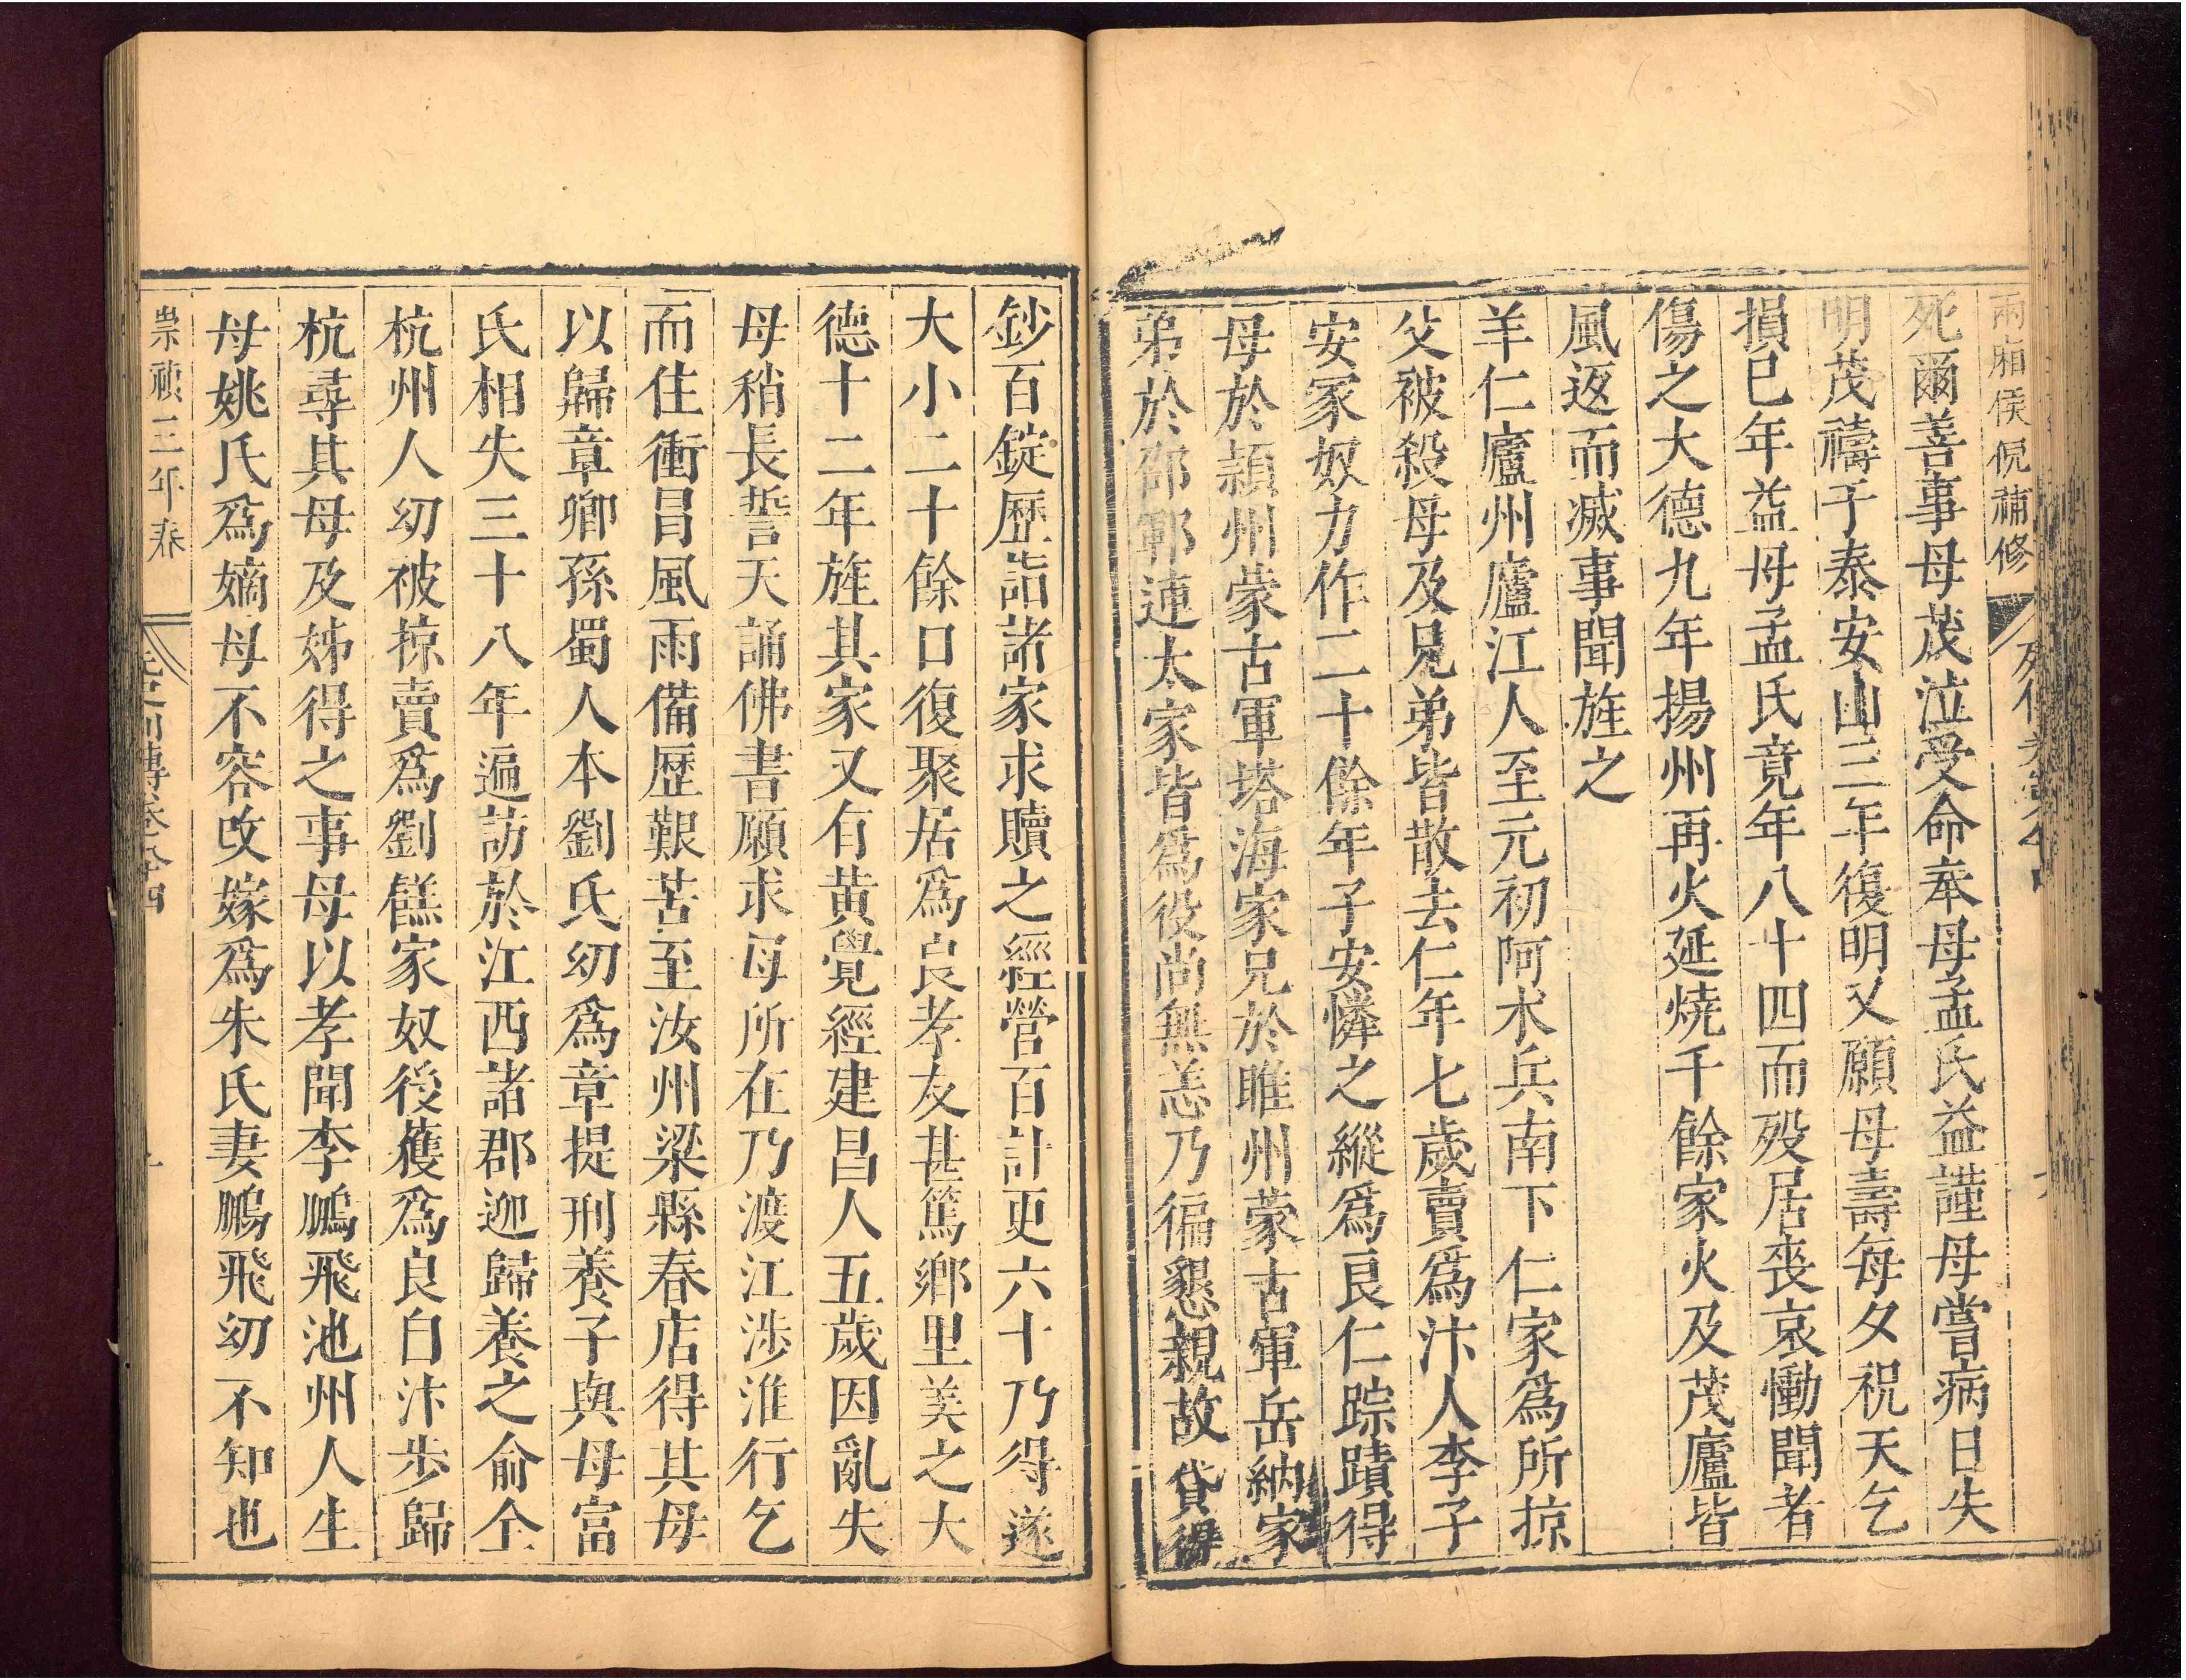 兩廂侯俔補修
死爾善事母茂泣受命奉母孟氏益謹母嘗病目失
明茂禱于泰安山三年復明又願母壽每夕祝天乞
損巳年益母孟氏竟年八十四而殁居喪哀慟聞者
傷之大德九年揚州再火延燒千餘家火及茂廬皆
風返而滅事聞旌之
羊仁廬州廬江人至元初阿术兵南下仁家爲所掠
父被殺母及兄弟皆散去仁年七歲賣爲汴人李子
安家奴力作二十餘年子安憐之縱爲良仁踪蹟得
母於頴州蒙古軍塔海家兄於睢州蒙古軍岳納家
弟於邵鄆連太家皆爲役尚無恙乃徧懇親故貸得
鈔百錠歷詣諸家求贖之經營百計更六十乃得遂
大小二十餘口復聚居爲良孝友甚篤鄉里美之大
德十二年旌其家又有黄覺經建昌人五歲因亂失
母稍長誓天誦佛書願求母所在乃渡江涉淮行乞
而住衝冒風雨備歷艱苦至汝州梁縣春店得其母
以歸章卿孫蜀人本劉氏幼爲章提刑養子與母富
氏相失三十八年遍訪於江西諸郡迎歸養之俞仝
杭州人幼被掠賣爲劉饈家奴後獲爲良自汴步歸
杭尋其母及姊得之事母以孝聞李鵬飛池州人生
母姚氏爲嫡母不容改嫁爲朱氏妻鵬飛幼不知也
崇禎三年春 元史列傳卷八十四